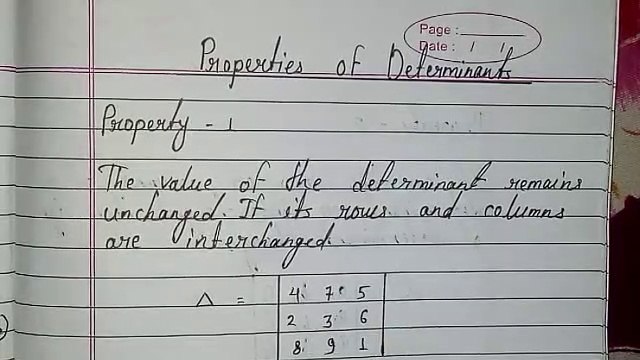 Page :
Date : / /
Properties of Determinants
Property - 1
The value of the determinant remains
unchanged. If its rows and columns
are interchanged.
Δ = | 4 7 5 |
| 2 3 6 |
| 8 9 1 |